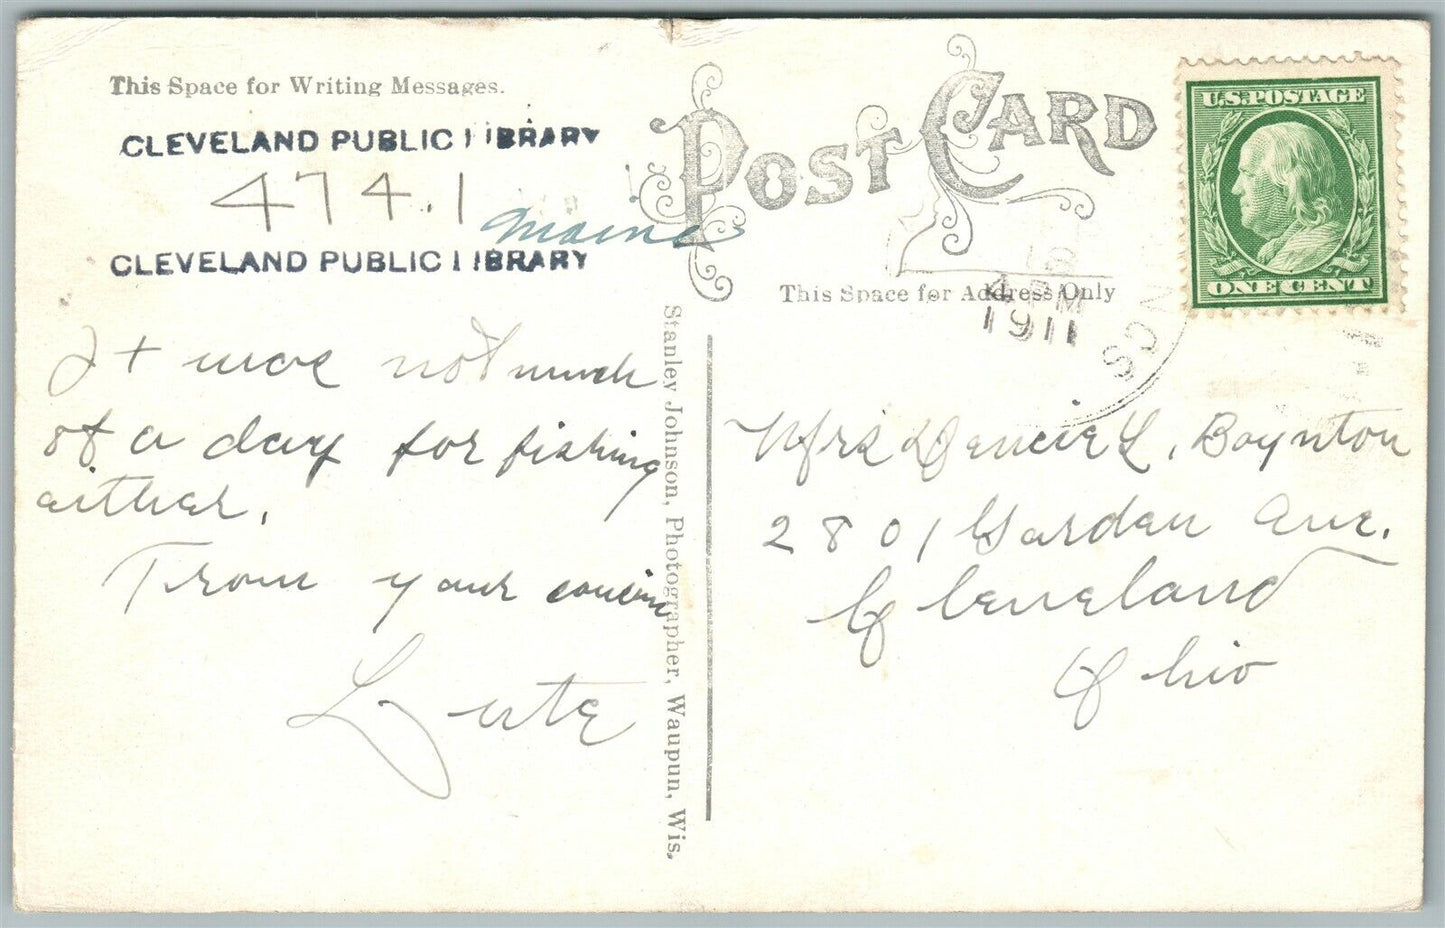 This Space for Writing Messages.
CLEVELAND PUBLIC LIBRARY
474.1
Maine
CLEVELAND PUBLIC LIBRARY
It was not much
of a day for fishing
either.
From your cousin
Lute
Stanley Johnson, Photographer, Waupun, Wis.
POST CARD
This Space for Address Only
PM
1911
NGS
U.S. POSTAGE
ONE CENT
Mrs L. Boynton
2801 Garden Ave.
Cleveland
Ohio